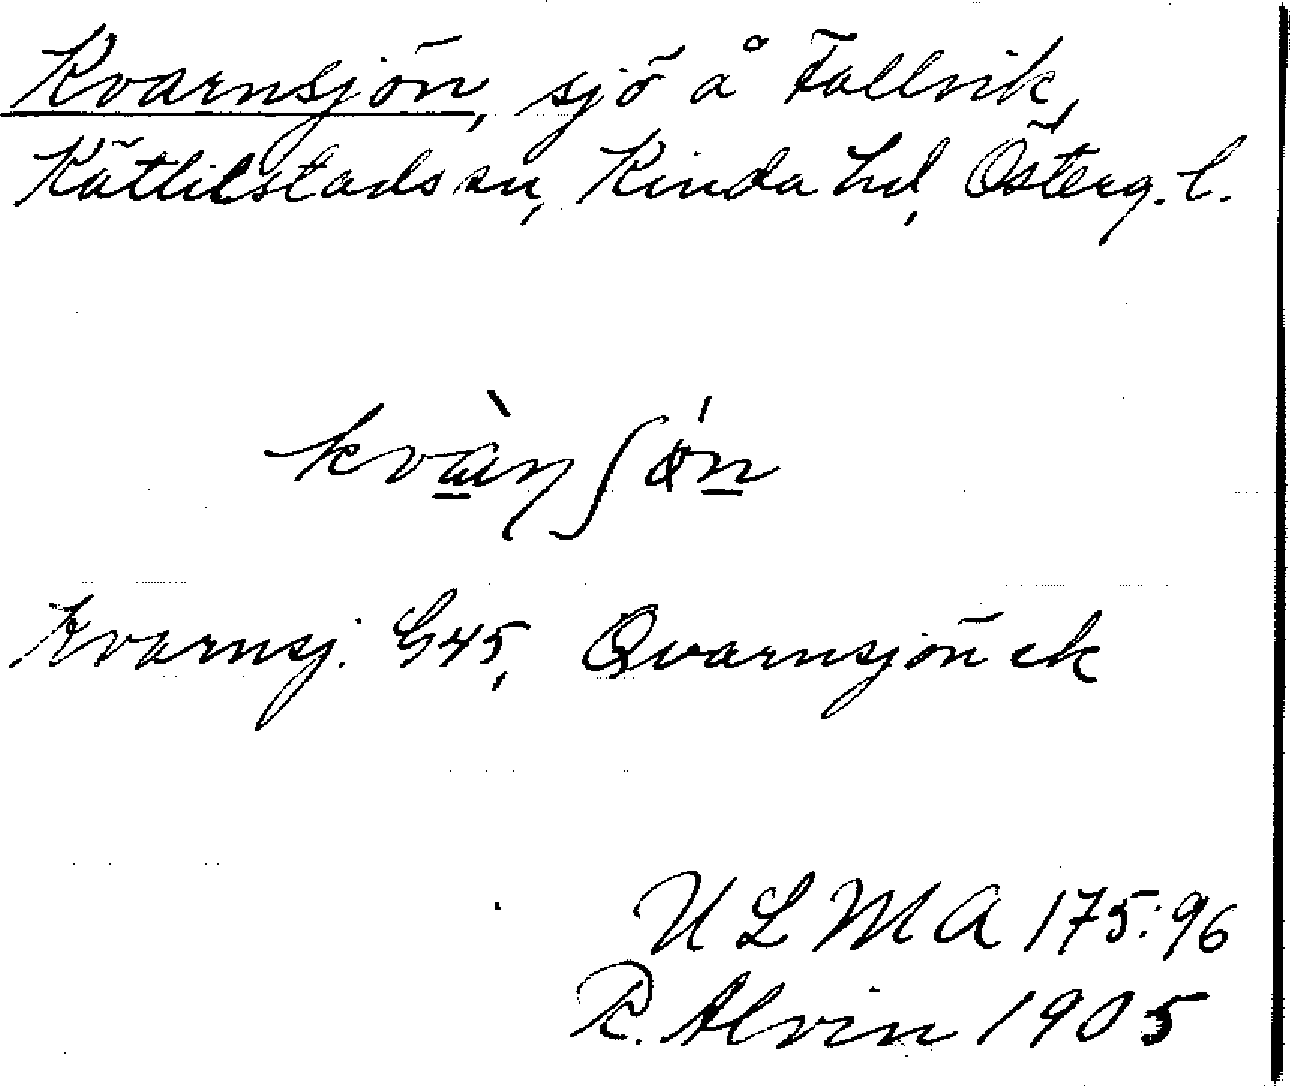 Kvarnsjön, sjö å Fallvik,
Kättilstads sn, Kinda hd, Österg. l.
kvàn ʃøn
Kvarnsj. G45, Qvarnsjön ek
ULMA 175:96
R. Alvin 1905